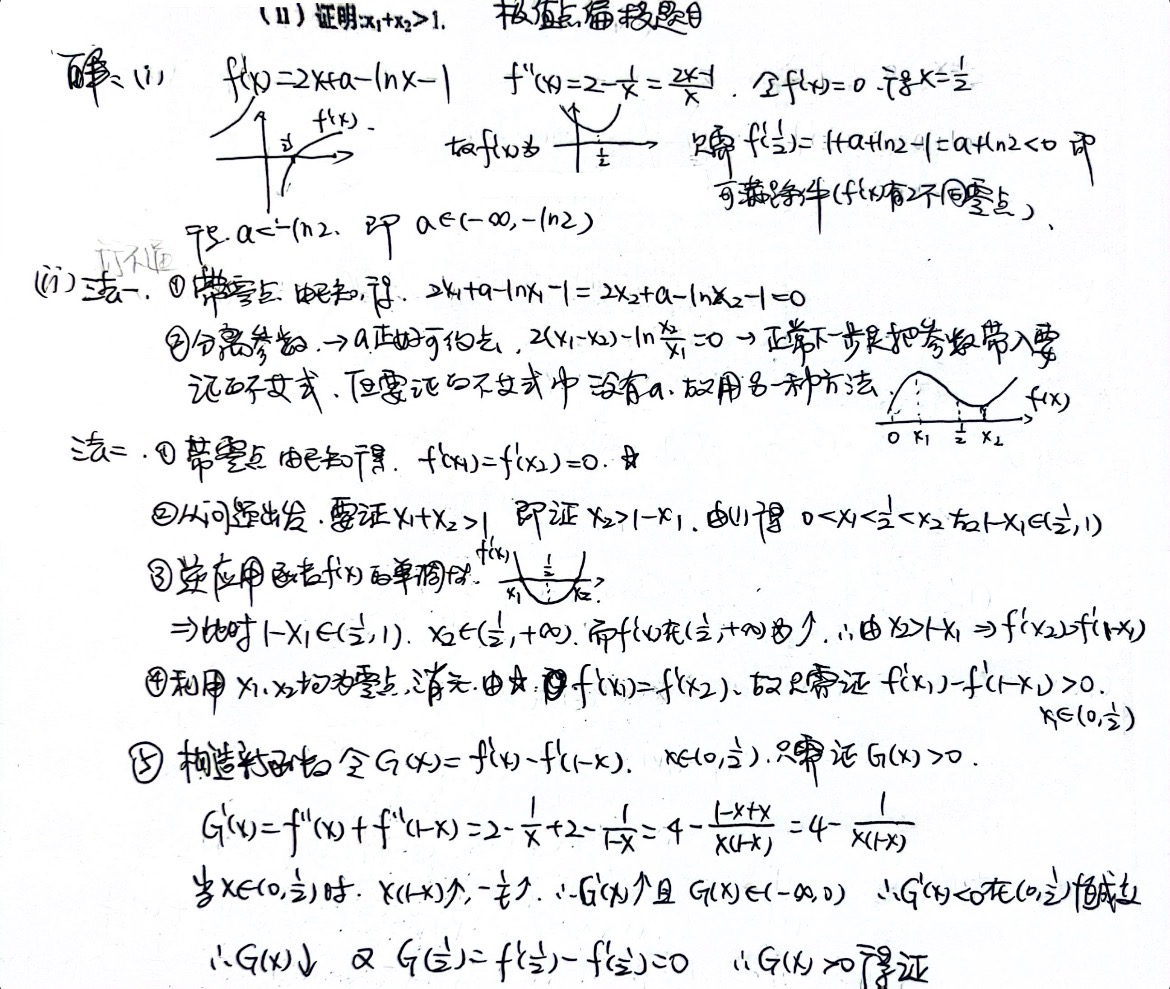 (Ⅱ) 证明:x₁+x₂>1. 极值点偏移题目
解: (i) f'(x)=2x+a-lnx-1 f''(x)=2-1/x=(2x-1)/x. 令f''(x)=0 得x=1/2
f''(x). 1/2 故f'(x)为 1/2 只需f'(1/2)=1+a+ln2-1=a+ln2<0 即
可满足条件(f'(x)有2不同零点)、
于是 a<-ln2、即 a∈(-∞,-ln2)
行不通
(ii) 法一. ①带零点 由已知,得. 2x₁+a-lnx₁-1=2x₂+a-lnx₂-1=0
②分离参数.→a正好可约去, 2(x₁-x₂)-ln x₂/x₁=0 → 正常下一步是把参数带入要
证的不等式. 但要证的不等式中没有a.故用另一种方法.
f(x) 0 x₁ 1/2 x₂
法二.①带零点 由已知得. f'(x₁)=f'(x₂)=0.☆
②从问题出发.要证x₁+x₂>1 即证x₂>1-x₁.由(1)得 0<x₁<1/2<x₂ 故1-x₁∈(1/2,1)
③逆应用函数f'(x)的单调性. f'(x) x₁ 1/2 x₂
⇒此时1-x₁∈(1/2,1). x₂∈(1/2,+∞).而f'(x)在(1/2,+∞)为↑.∴由x₂>1-x₁⇒f'(x₂)>f'(1-x₁)
④利用x₁、x₂均为零点,消元.由☆.即f'(x₁)=f'(x₂)、故只需证 f'(x₁)-f'(1-x₁)>0.
x₁∈(0,1/2)
⑤ 构造新函数 令G(x)=f'(x)-f'(1-x). x∈(0,1/2).只需证G(x)>0.
G'(x)=f''(x)+f''(1-x)=2-1/x+2-1/(1-x)=4-(1-x+x)/(x(1-x))=4-1/(x(1-x))
当x∈(0,1/2)时. x(1-x)↑,-1/t↑.∴G'(x)↑且 G'(x)∈(-∞,0) ∴G'(x)<0在(0,1/2)恒成立
∴G(x)↓ 又 G(1/2)=f'(1/2)-f'(1/2)=0 ∴G(x)>0 得证